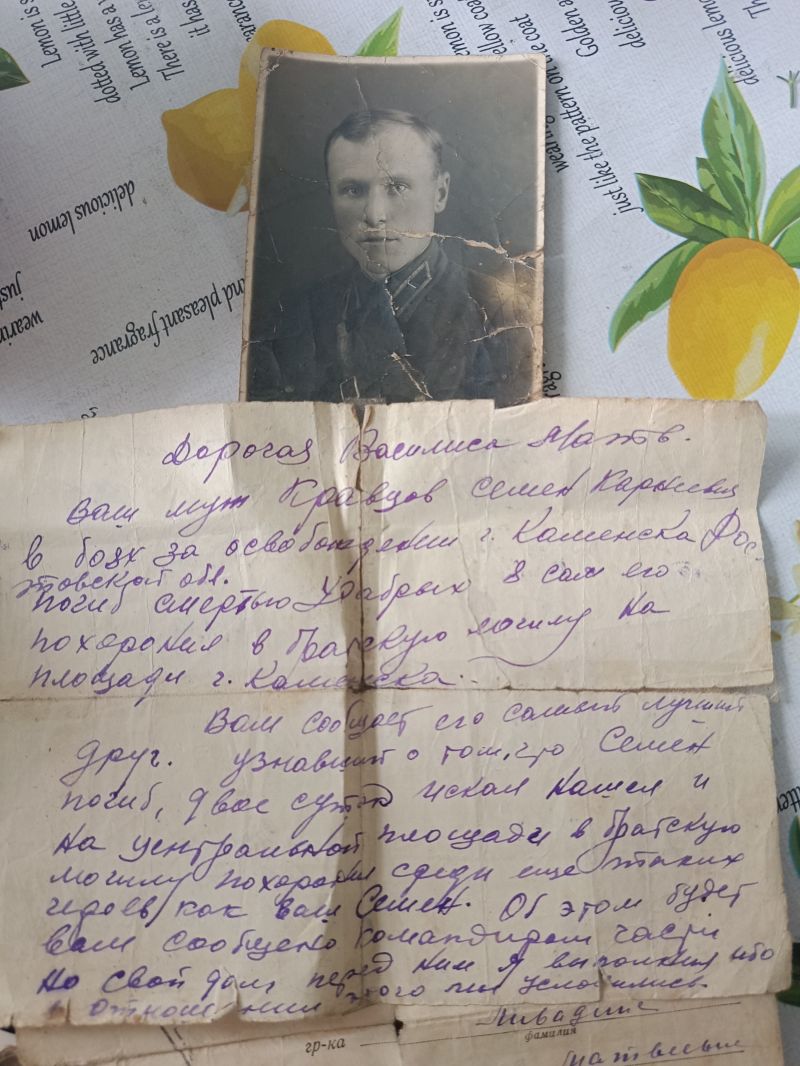 Lemon is s
Lemon has a v
There is a lem
it has
dotted with little
delicious lemon
wearin
just
and pleasant fragrance
wearing
just like the pattern on the coat
Golden a
delicious lem
delicious lemo
Дорогая Василиса Матв.
Ваш муж Кравцов Семен
в боях за освобождении г. Каменска Рос-
товской обл.
погиб смертью Храбрых Я сам его
похоронил в братскую могилу на
площади г. Каменска.
Вам сообщает его самый лучший
друг. узнавший о том, что Семен
погиб, двое суток искал нашел и
на центральной площади в братскую
могилу похоронил среди еще таких
героев как ваш Семен. Об этом будет
вам сообщено командиром части
но свой долг перед ним я выполнил ибо
в отношении этого мы условились.
гр-ка
фамилия